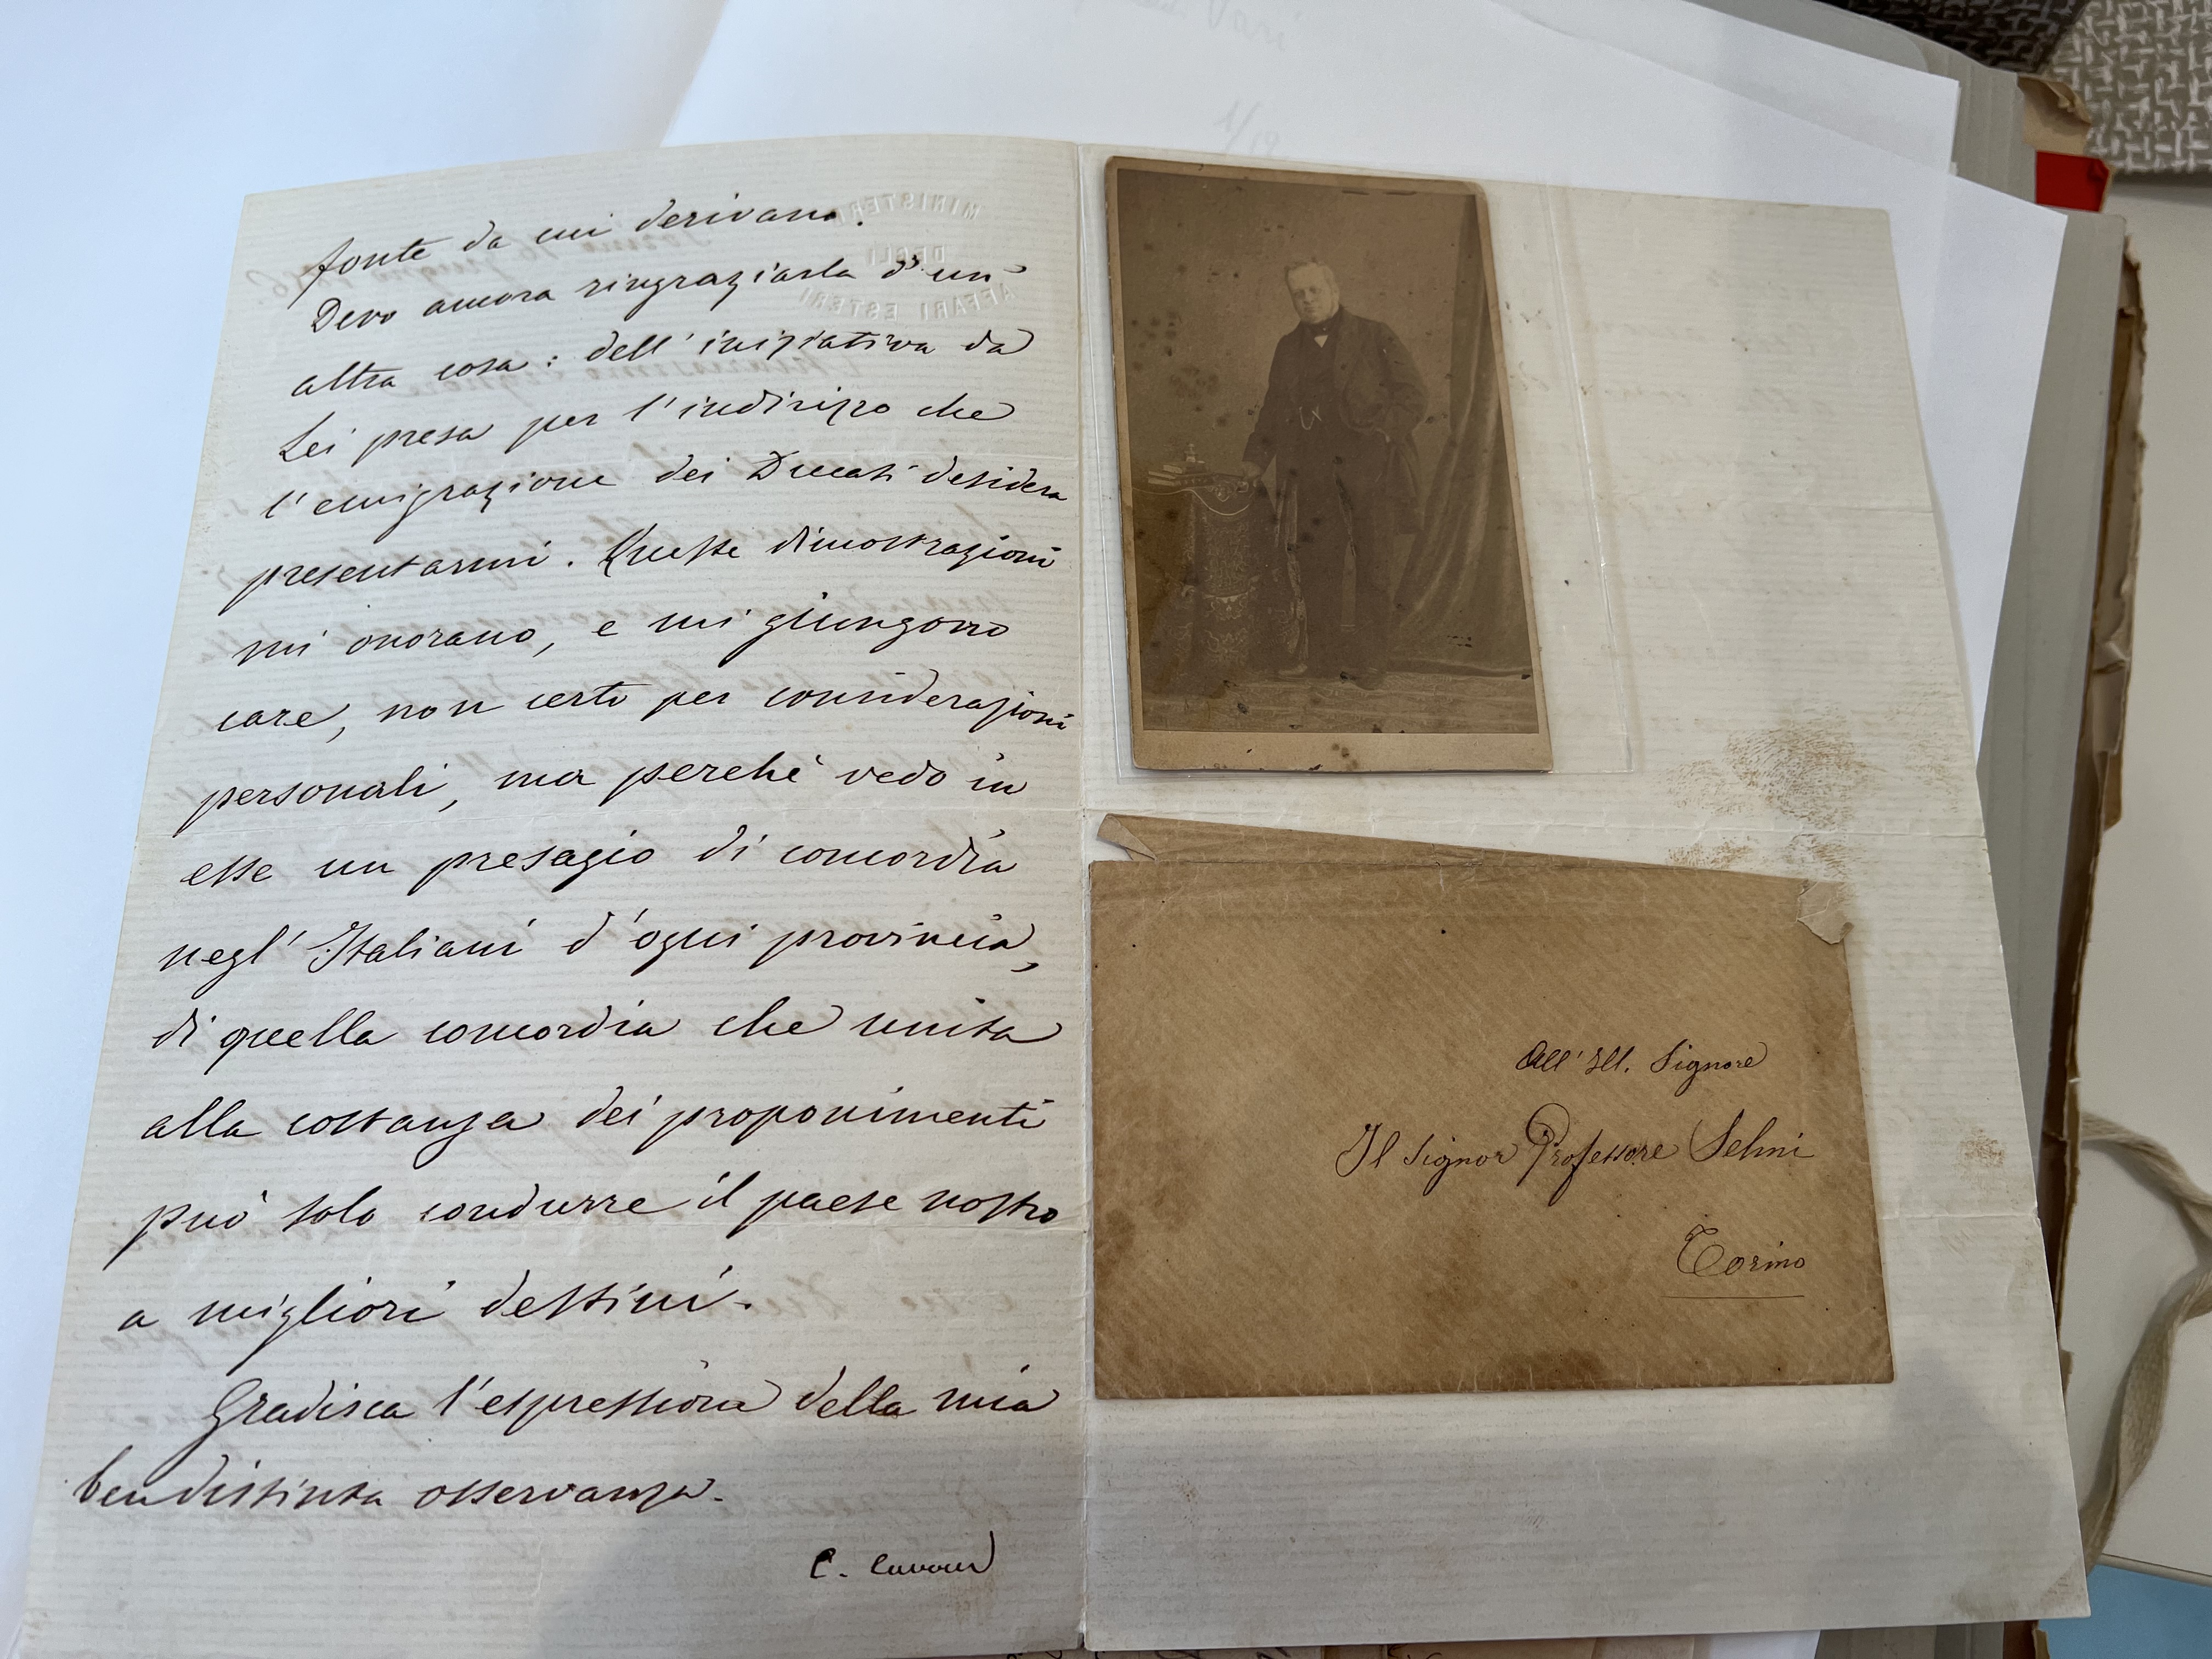 fonte da cui derivano.
Devo ancora ringraziarla d'un'
altra cosa: dell'iniziativa da
Lei presa per l'indirizzo che
l'emigrazione dei Ducati desidera
presentarmi. Queste dimostrazioni
mi onorano, e mi giungono
care, non certo per considerazioni
personali, ma perchè vedo in
esse un presagio di concordia
negl'Italiani d'ogni provincia,
di quella concordia che unita
alla costanza dei proponimenti
può solo condurre il paese nostro
a migliori destini.
Gradisca l'espressione della mia
ben distinta osservanza.
C. Cavour
MINISTERO
DEGLI
AFFARI ESTERI
All' Ill. Signore
Il Signor Professore Selmi
Torino